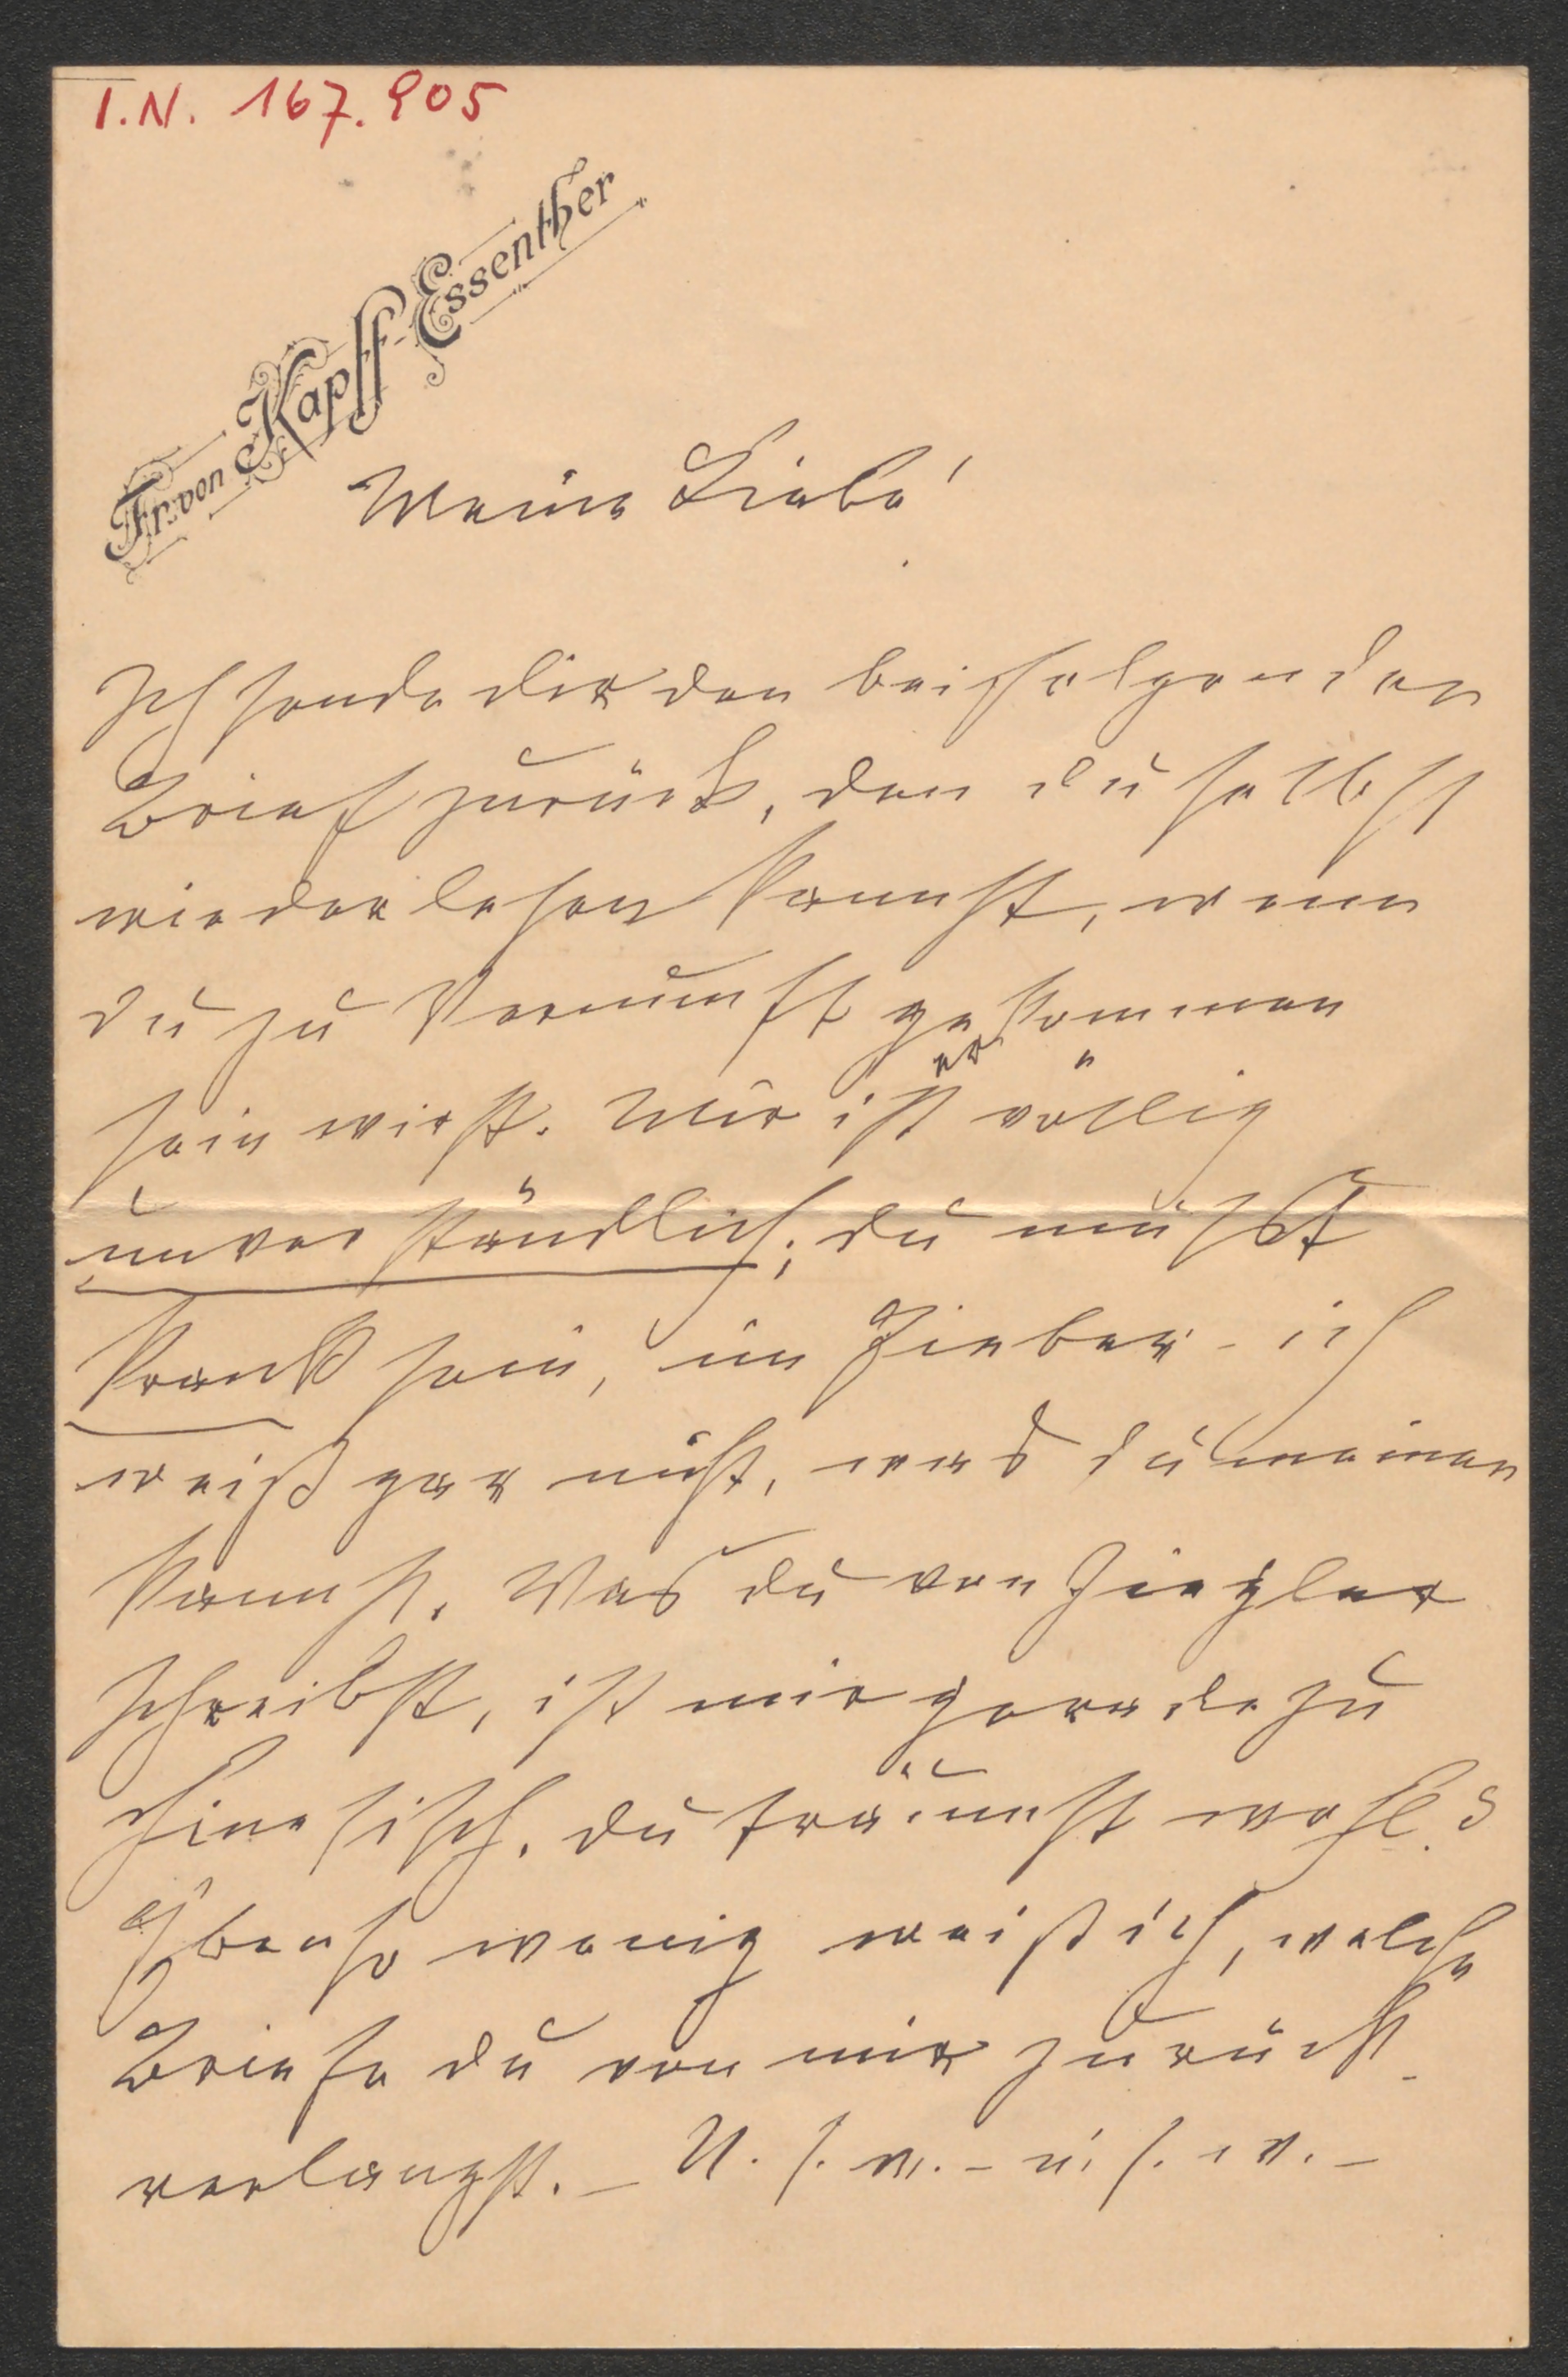 I.N. 167.905
Fr. von Kapff-Essenther
Meine Liebe!
Ich sende dir den beifolgenden
Brief zurück, den du selbst
wieder lesen kannst, wenn
du zu Vernunft gekommen
sein wirst. Mir ist er völlig
unverständlich; du mußt
krank sein, im Fieber - ich
weiß gar nicht, was du meinen
kannst. Was du von Ziegler
schreibst, ist mir geradezu
chinesisch. du träumst wohl?
Ebenso wenig weiß ich, welche
Briefe du von mir zurück-
verlangst. – U. s. w. – u. s. w. –